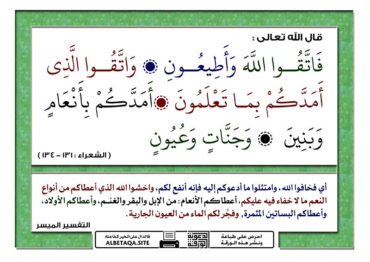 قال الله تعالى :
فَاتَّقُوا اللَّهَ وَأَطِيعُونِ ۞ وَاتَّقُوا الَّذِى
أَمَدَّكُم بِمَا تَعْلَمُونَ ۞ أَمَدَّكُم بِأَنْعَامٍ
وَبَنِينَ ۞ وَجَنَّاتٍ وَعُيُونٍ
( الشعراء : ١٣١ - ١٣٤ )
أي فخافوا الله، وامتثلوا ما أدعوكم إليه فإنه أنفع لكم، واخشوا الله الذي أعطاكم من أنواع
النعم ما لا خفاء فيه عليكم، أعطاكم الأنعام: من الإبل والبقر والغنم، وأعطاكم الأولاد،
وأعطاكم البساتين المثمرة، وفجَّر لكم الماء من العيون الجارية.
التفسير الميسر
احرص على طباعة
ونشر هذه الورقة
فالدال على الخير كفاعله
ALBETAQA.SITE